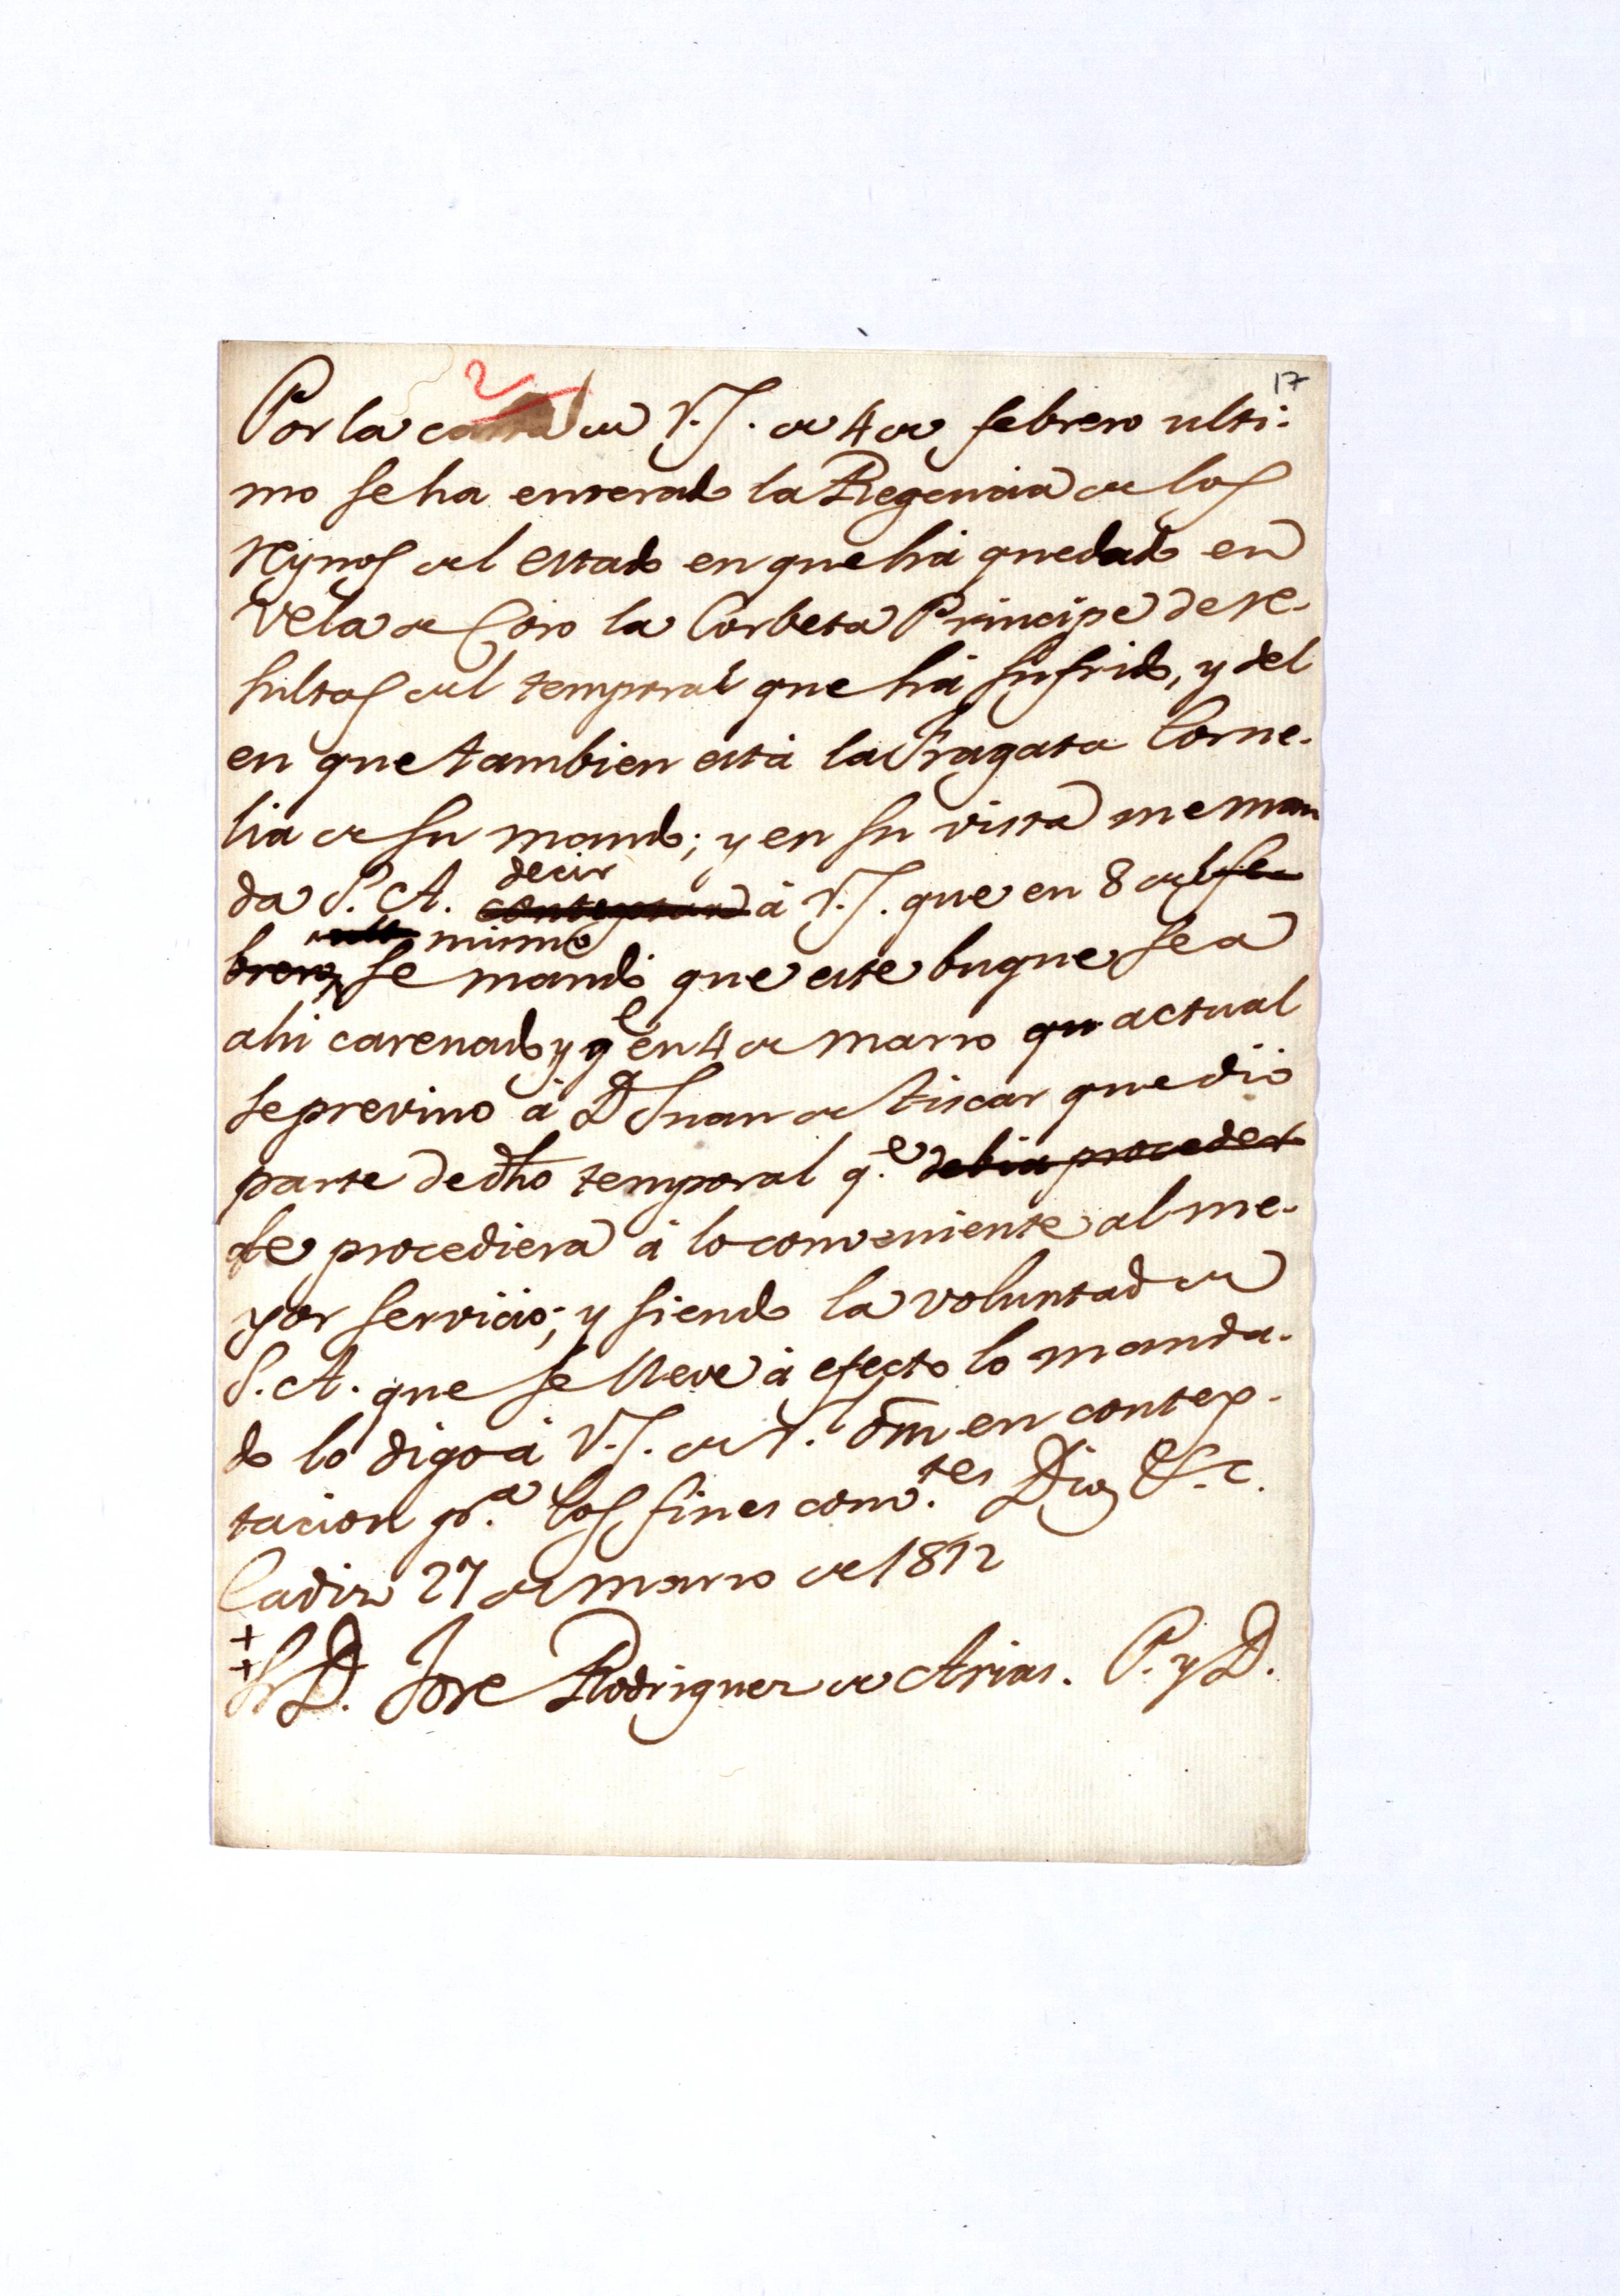 2
17
Por la carta de V.S. de 4 de febrero ulti-
mo se ha enterado la Regencia de los
Reynos del estado en que há quedado en
Vela de Coro la Corbeta Principe de re-
sultas del temporal que há sufrido, y del
en que tambien está la Fragata Corne-
lia de su mando; y en su vista me man
decir
da S.A. contextar á V.S. que en 8 del fe
mismo
brero, se mandó que este buque sea
ahi carenado, y qe en 4 de marzo actual
se previno á Dn Juan de Tiscar que dió
parte de dho temporal q.e debia proceder
se procediera á lo conveniente al me-
yor servicio; y siendo la voluntad de
S.A. que se lleve á efecto lo manda-
do lo digo á V.S. de r.l orn en contex-
tacion p.a los fines conv.tes Dios &c.
Cadiz 27 de marzo de 1812
Sr D. Jose Rodriguez de Arias. P. y D.